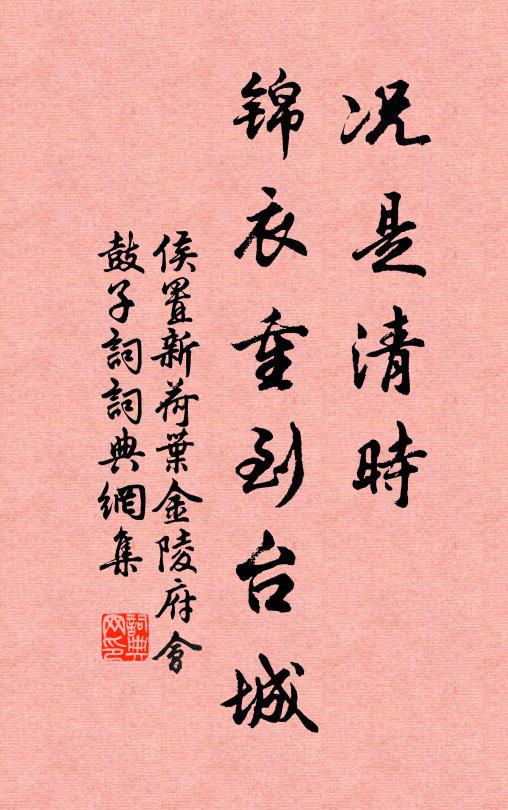 况是清時
錦衣重到台城
侯置新荷葉金陵府會
鼓子詞詞典網集
詞典网印